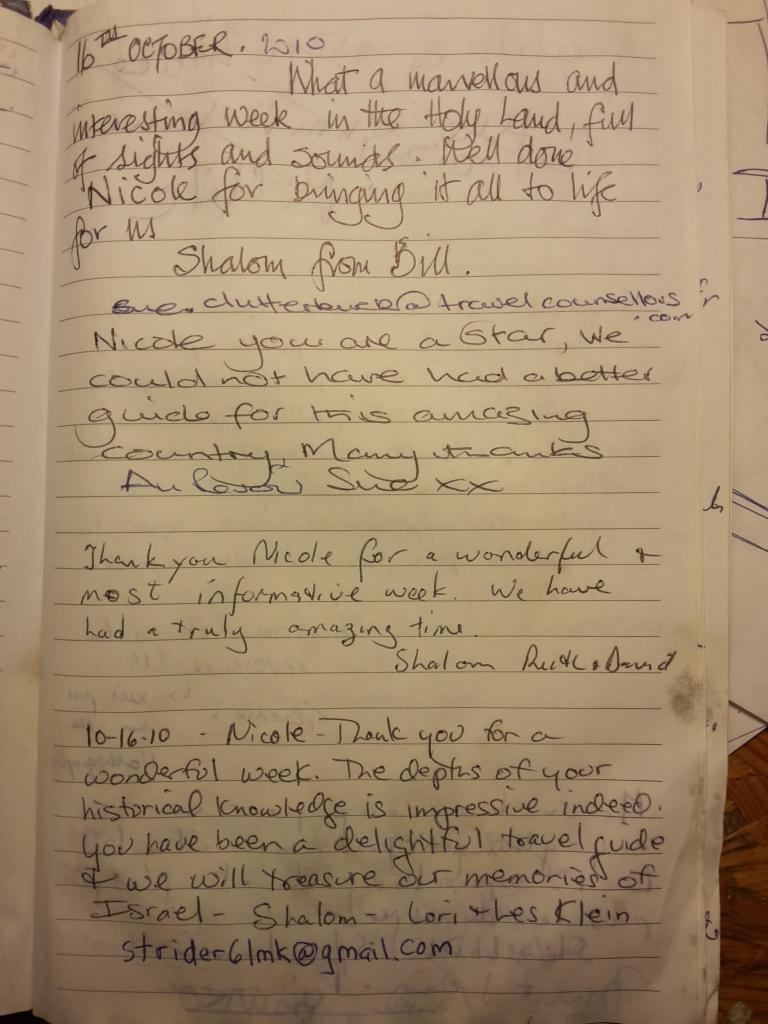 16TH OCTOBER. 2010
What a marvellous and
interesting week in the Holy Land, full
of sights and sounds. Well done
Nicole for bringing it all to life
for us
Shalom from Bill.
sue.clutterbuck@travelcounsellors
.com
Nicole you are a Star, we
could not have had a better
guide for this amazing
country, Many thanks
Sue xx
Thank you Nicole for a wonderful &
most informative week. We have
had a truly amazing time.
Shalom Ruth & David
10-16-10 - Nicole - Thank you for a
wonderful week. The depths of your
historical knowledge is impressive indeed.
You have been a delightful travel guide
& we will treasure our memories of
Israel - Shalom - Lori & Les Klein
strider61mk@gmail.com